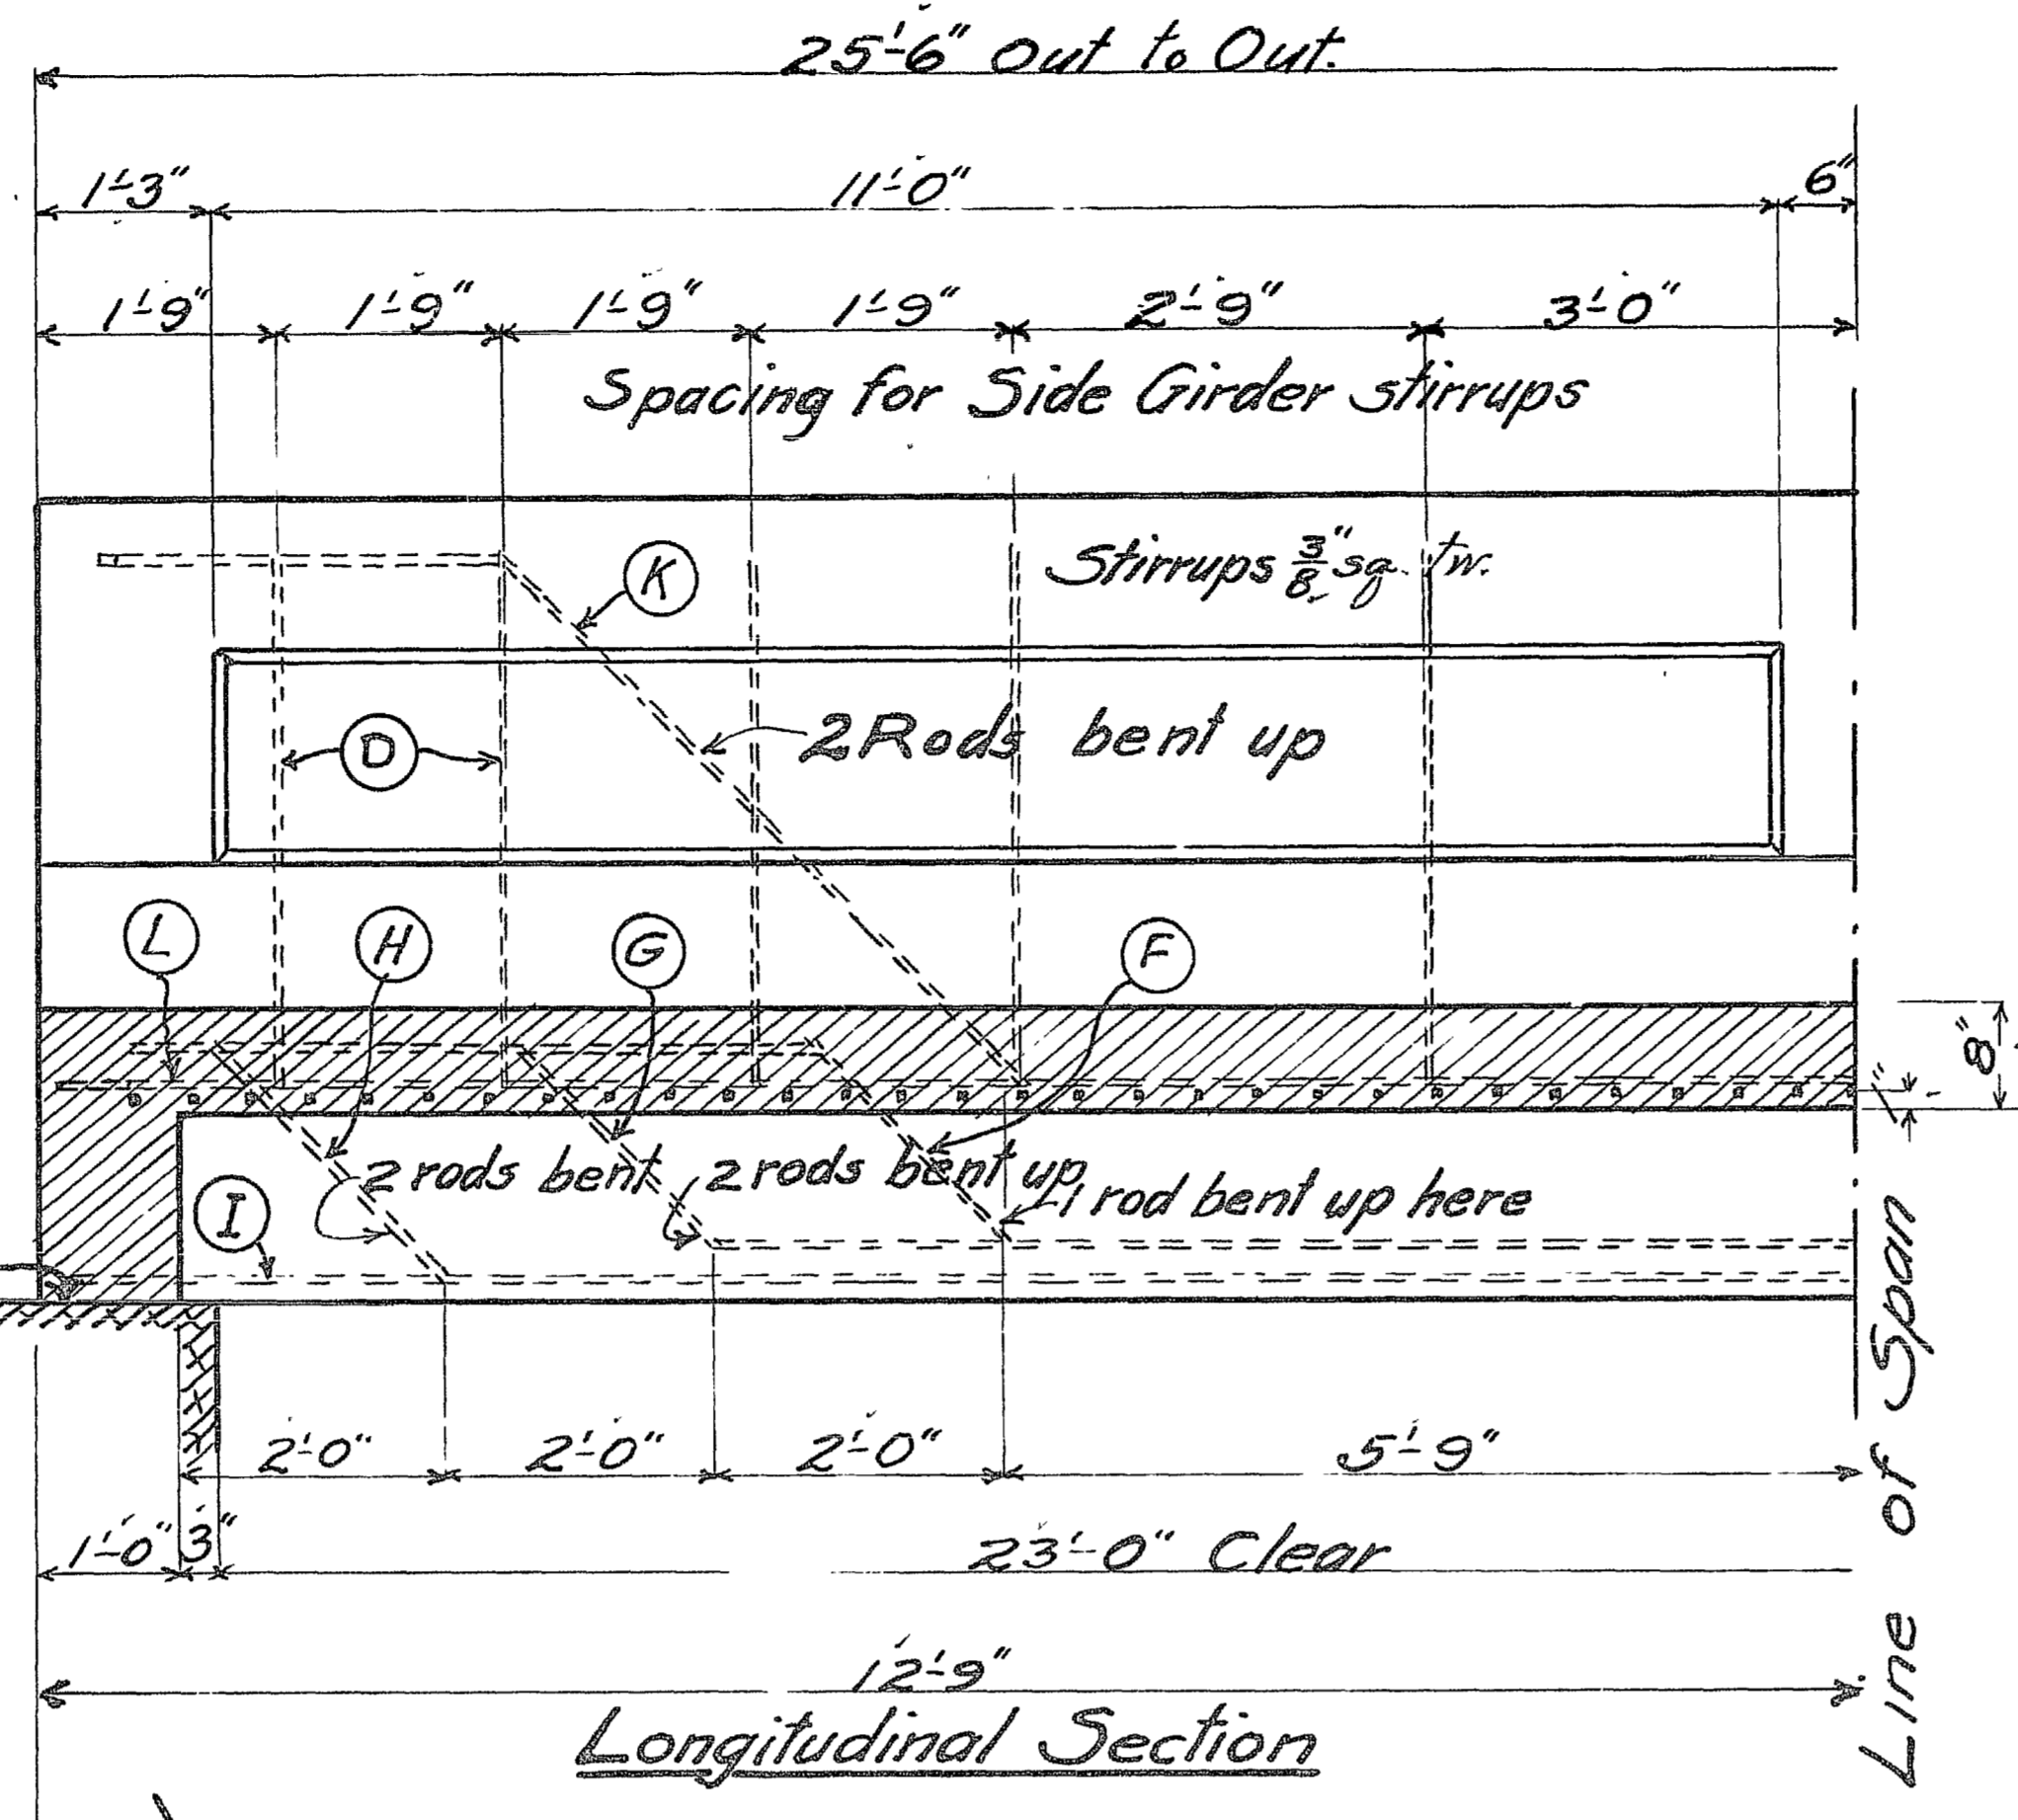 25'-6" Out to Out.
1'-3" 11'-0" 6"
1'-9" 1'-9" 1'-9" 1'-9" 2'-9" 3'-0"
Spacing for Side Girder stirrups
K
Stirrups 3/8" sq. tw.
D
2 Rods bent up
L H G F
8"
1"
2 rods bent
2 rods bent up
1 rod bent up here
I
2'-0" 2'-0" 2'-0" 5'-9"
1'-0" 3" 23'-0" Clear
12'-9"
Line of Span
Longitudinal Section